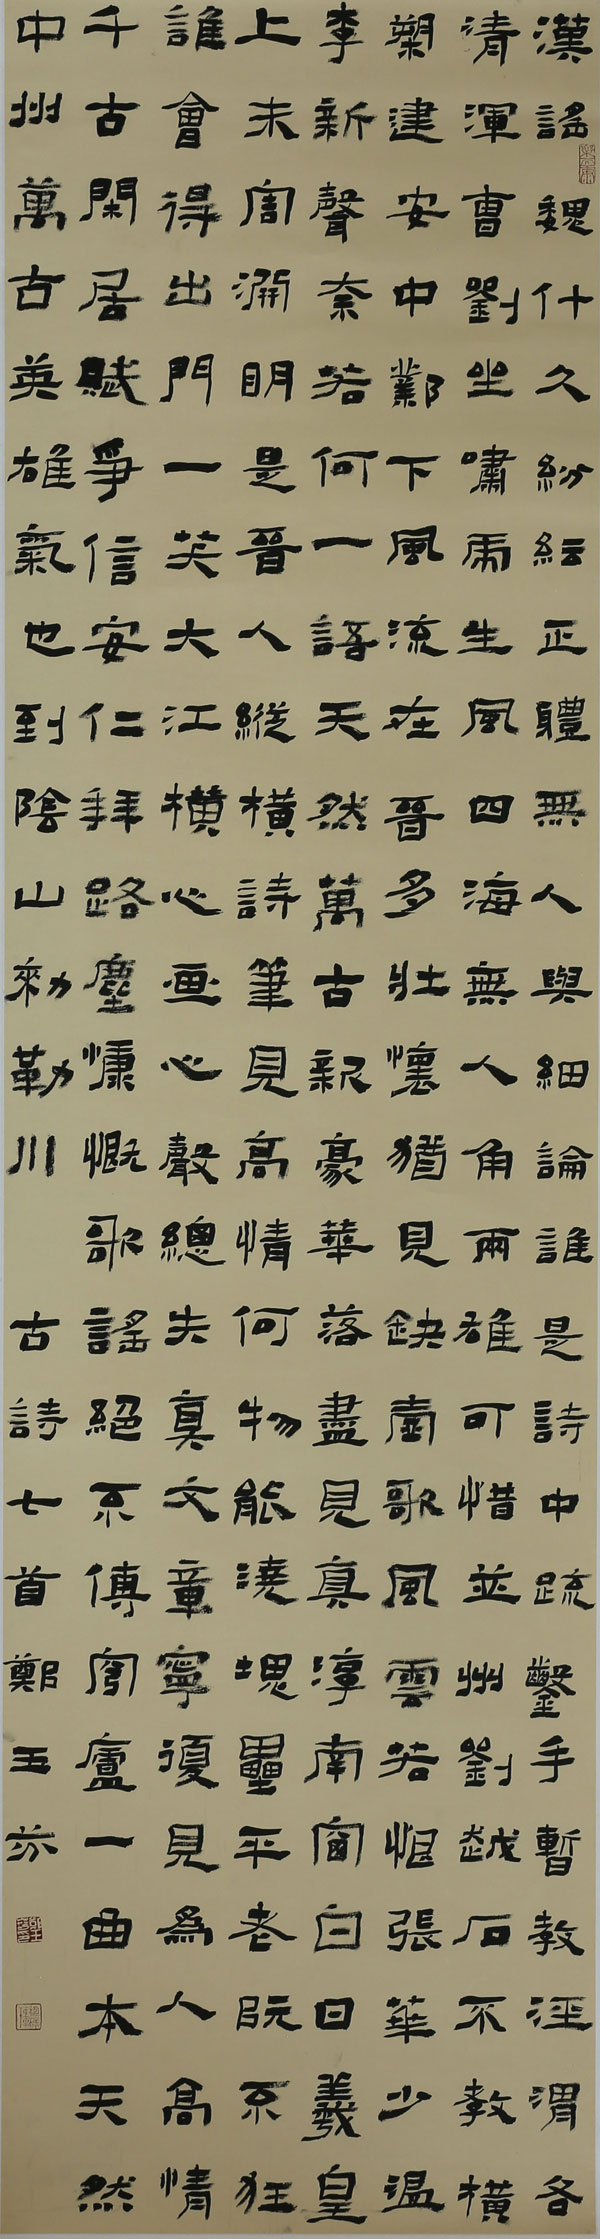 漢謠魏什久紛紜正體無人與細論誰是詩中疏鑿手暫教涇渭各
清渾曹劉坐嘯虎生風四海無人角兩雄可惜並州劉越石不教橫
槊建安中鄴下風流在晉多壯懷猶見缺壺歌風雲若恨張華少溫
李新聲奈若何一語天然萬古新豪華落盡見真淳南窗白日羲皇
上未害淵明是晉人縱橫詩筆見高情何物能澆塊壘平老阮不狂
誰會得出門一笑大江橫心画心聲總失真文章寧復見為人高情
千古閑居賦爭信安仁拜路塵慷慨歌謠絕不傳穹廬一曲本天然
中州萬古英雄氣也到陰山勑勒川 古詩七首鄭玉